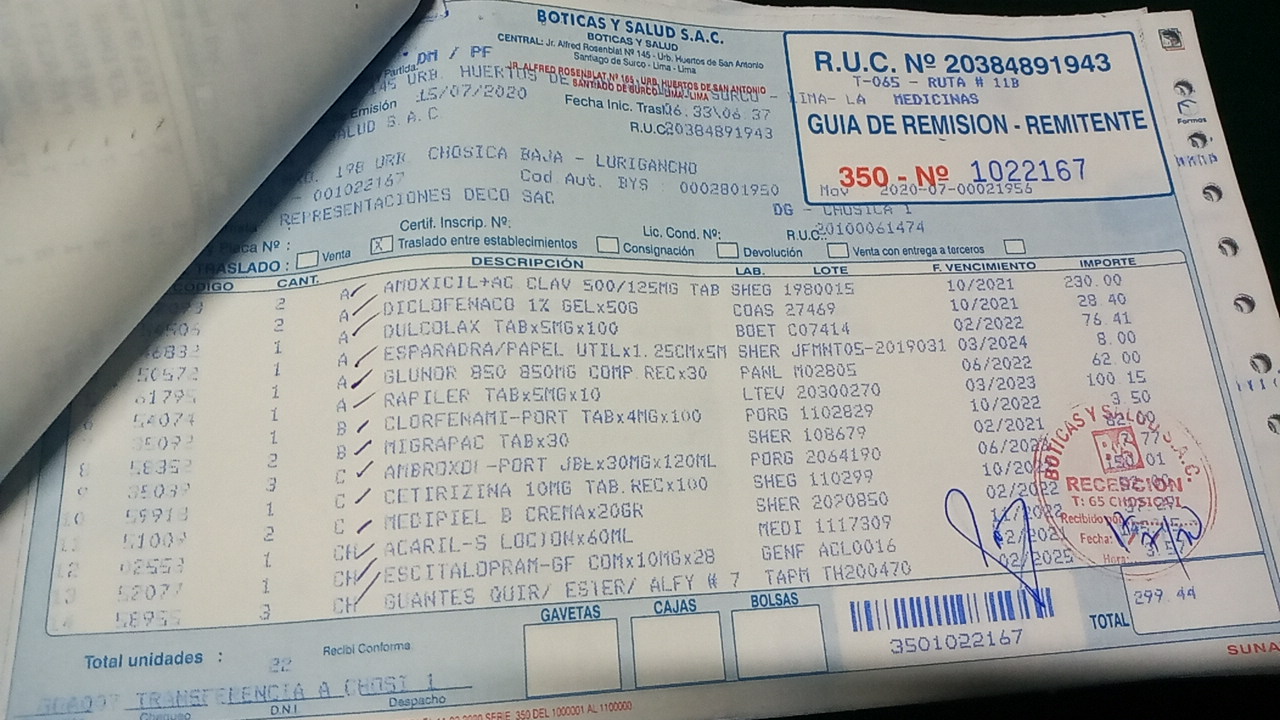 BOTICAS Y SALUD S.A.C.
BOTICAS Y SALUD
CENTRAL: Jr. Alfred Rosenblat Nº 145 - Urb. Huertos de San Antonio
Santiago de Surco - Lima - Lima
JR. ALFRED ROSENBLAT Nº 165 - URB. HUERTOS DE SAN ANTONIO
SANTIAGO DE SURCO - LIMA - LIMA
DM / PF
Partida:
145 URB. HUERTOS DE SURCO -
LIMA- LA MEDICINAS
Emisión 15/07/2020 Fecha Inic. Trasl 06.33\06.37
SALUD S.A.C R.U.C 20384891943
R.U.C. Nº 20384891943
T-065 - RUTA # 11B
GUIA DE REMISION - REMITENTE
350 - Nº 1022167
Mov 2020-07-00021956
198 URB. CHOSICA BAJA - LURIGANCHO
- 001022167 Cod Aut. BYS : 0002801950
REPRESENTACIONES DECO SAC DG - CHOSICA 1
Certif. Inscrip. Nº: Lic. Cond. Nº: R.U.C.: 20100061474
Placa Nº :
TRASLADO : Venta X Traslado entre establecimientos Consignación Devolución Venta con entrega a terceros
CODIGO CANT. DESCRIPCIÓN LAB. LOTE F. VENCIMIENTO IMPORTE
2 A AMOXICIL+AC CLAV 500/125MG TAB SHEG 1980015 10/2021 230.00
2 A DICLOFENACO 1% GELx50G COAS 27469 10/2021 28.40
1 A DULCOLAX TABx5MGx100 BOET C07414 02/2022 76.41
1 A ESPARADRA/PAPEL UTILx1.25CMx5M SHER JFMNT05-2019031 03/2024 8.00
50572 1 A GLUNOR 850 850MG COMP.RECx30 PANL M02805 06/2022 62.00
61795 1 A RAPILER TABx5MGx10 LTEV 20300270 03/2023 100.15
54074 1 B CLORFENAMI-PORT TABx4MGx100 PORG 1102829 10/2022 3.50
35092 1 B MIGRAPAC TABx30 SHER 108679 02/2021 82.00
8 58352 2 C AMBROXOL-PORT JBEx30MGx120ML PORG 2064190
9 35039 3 C CETIRIZINA 10MG TAB.RECx100 SHEG 110299
10 59918 1 C MEDIPIEL B CREMAx20GR SHER 2020850 02/2022
11 51009 2 CH ACARIL-S LOCIONx60ML MEDI 1117309
12 02553 1 CH ESCITALOPRAM-GF COMx10MGx28 GENF ACL0016
13 52077 1 CH GUANTES QUIR/ ESTER/ ALFY # 7 TAPM TH200470 02/2025
14 58955 3
BOTICAS Y SALUD S.A.C.
RECEPCIÓN
T: 65 CHOSICA 1
Recibido por
Fecha:
Hora:
GAVETAS CAJAS BOLSAS
3501022167
TOTAL 299.44
Total unidades : 22 Recibi Conforme
TRANSFERENCIA A CHOSI 1
Chequeo D.N.I. Despacho
SERIE 350 DEL 1000001 AL 1100000
SUNA